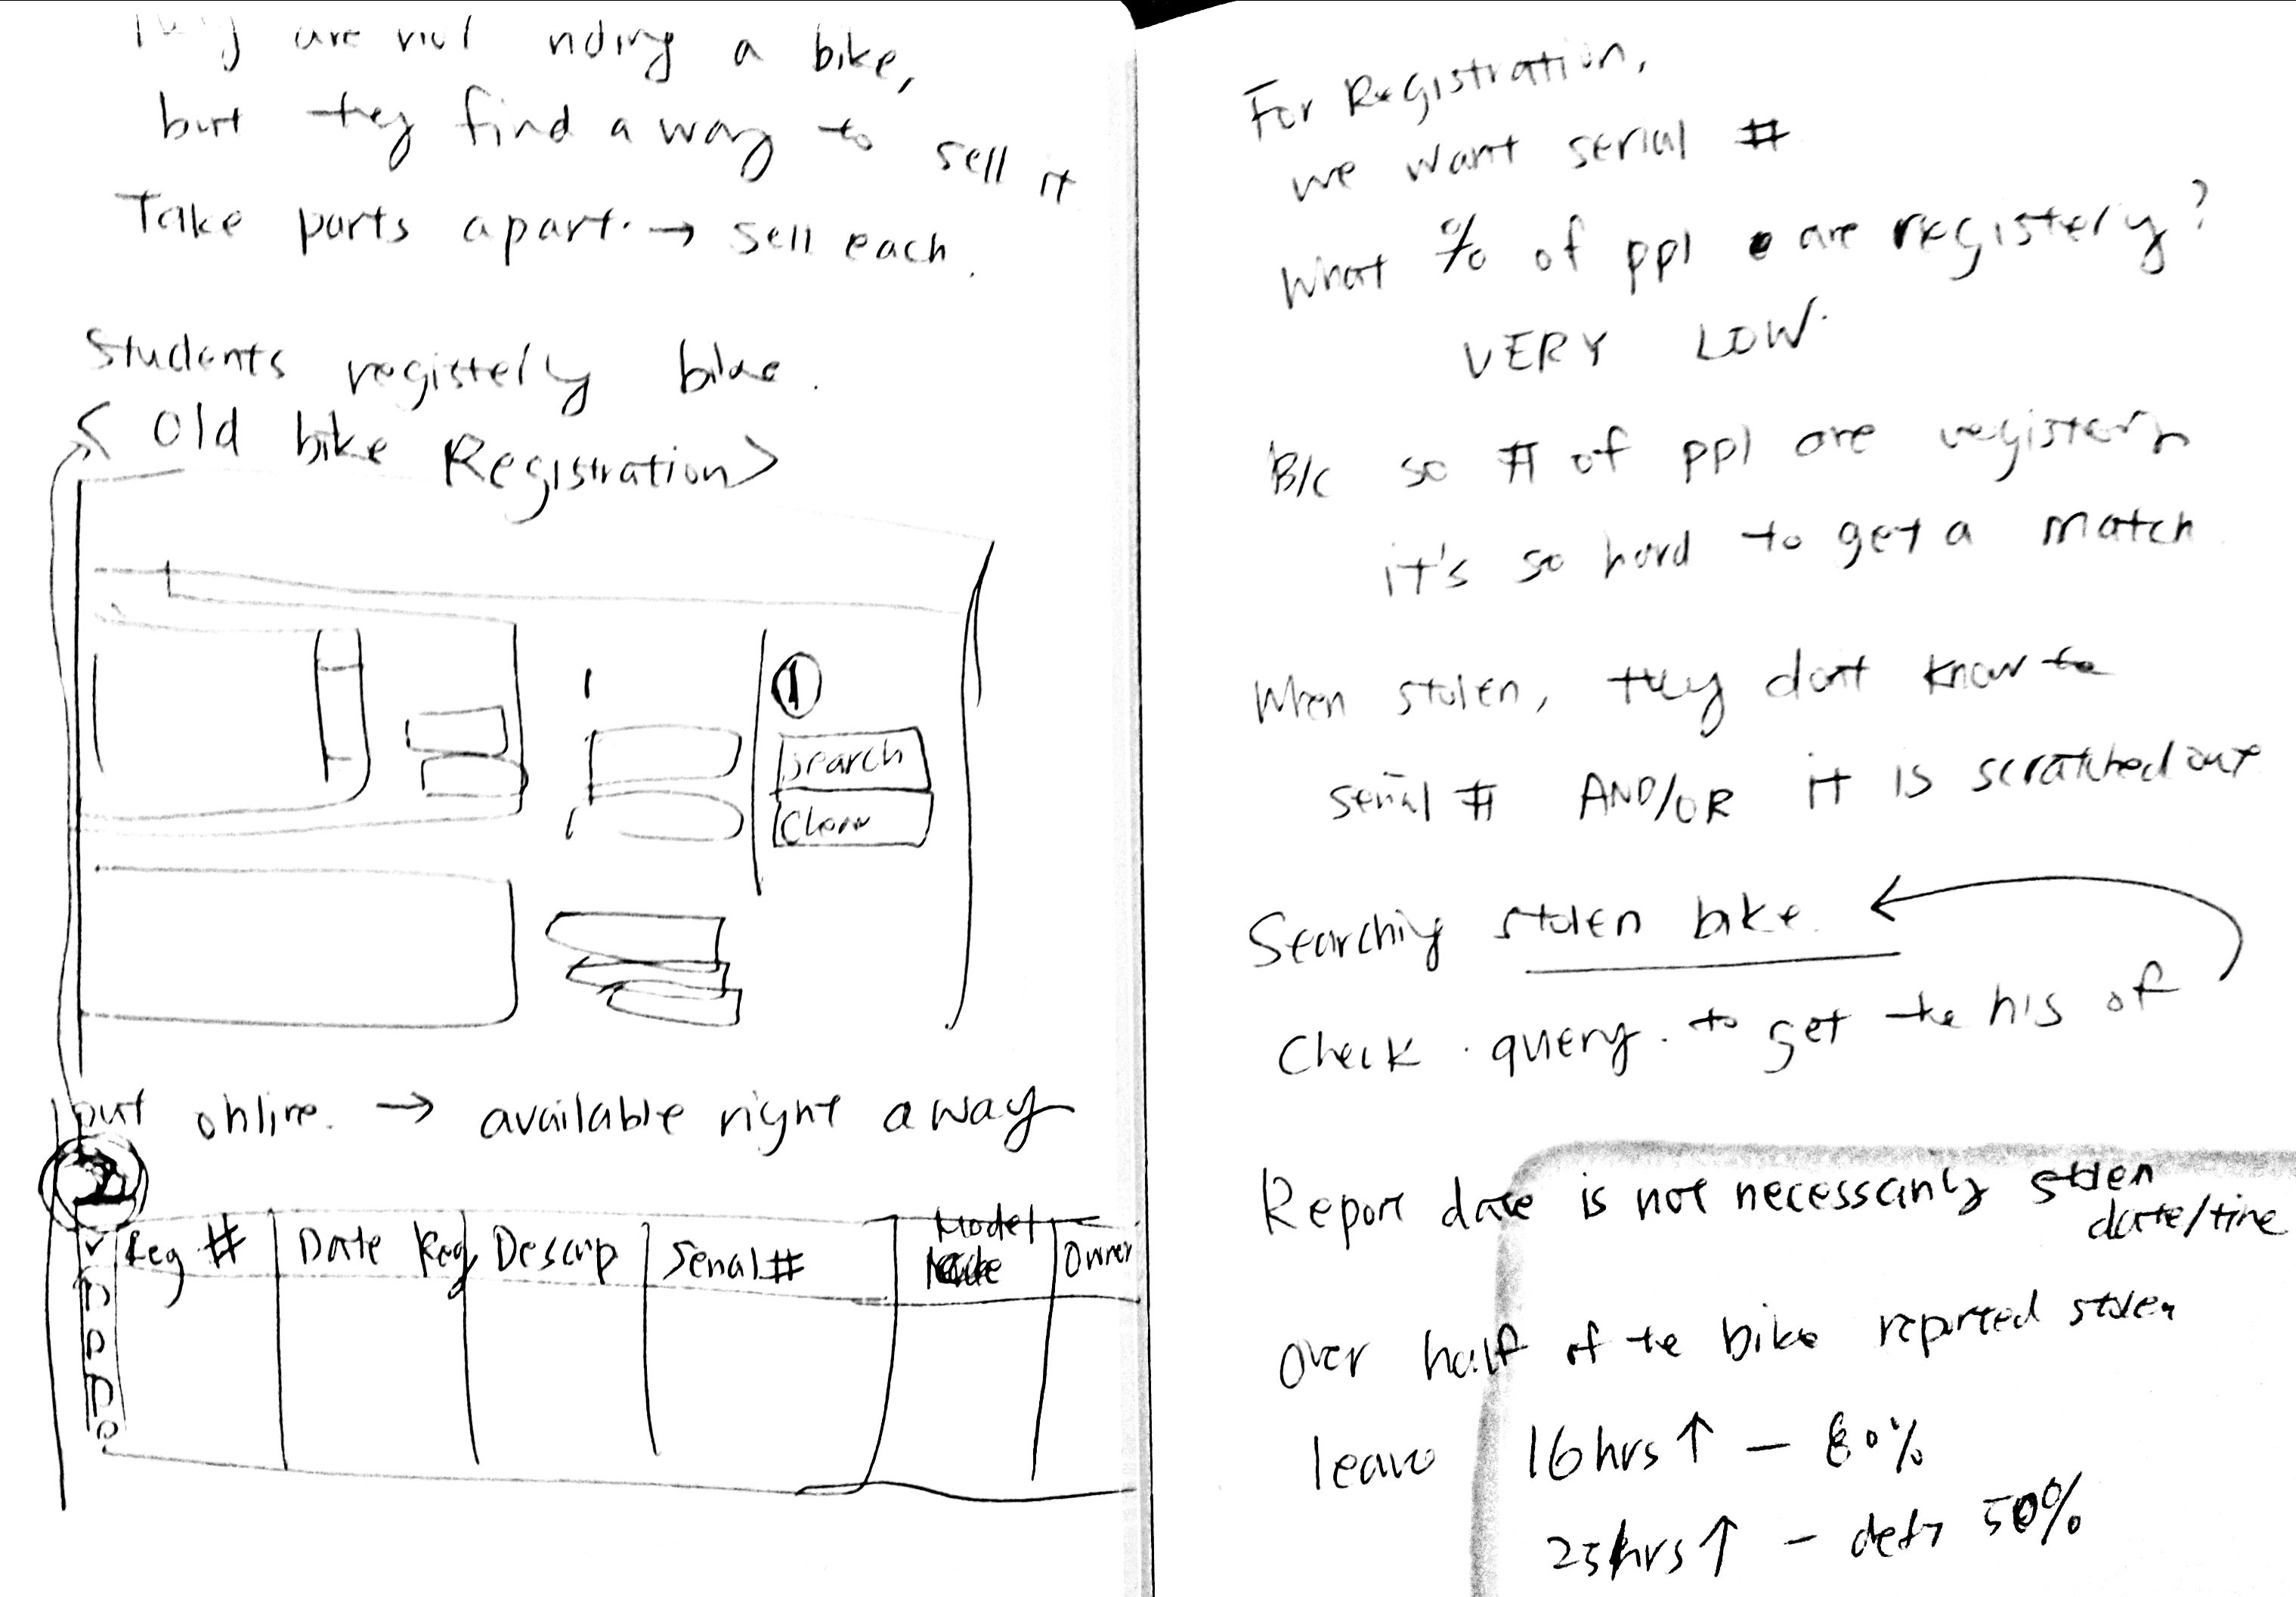 They are not riding a bike,
but they find a way to sell it
Take parts apart. → sell each.
Students registerly bike.
< Old bike Registration >
1
Search
Clear
put online. → available right away
2
Reg # Date Reg Descrip Serial # Model Owner
For Registration,
we want serial #
What % of ppl are registerly?
VERY LOW.
B/C so # of ppl are registern
it's so hard to get a match
When stolen, they don't know to
serial # AND/OR it is scratched out
Searching stolen bike.
Check query to get the his of
Report date is not necessarily stolen
date/time
over half of the bike reported stolen
leave 16 hrs ↑ - 80%
25 hrs ↑ - def 50%